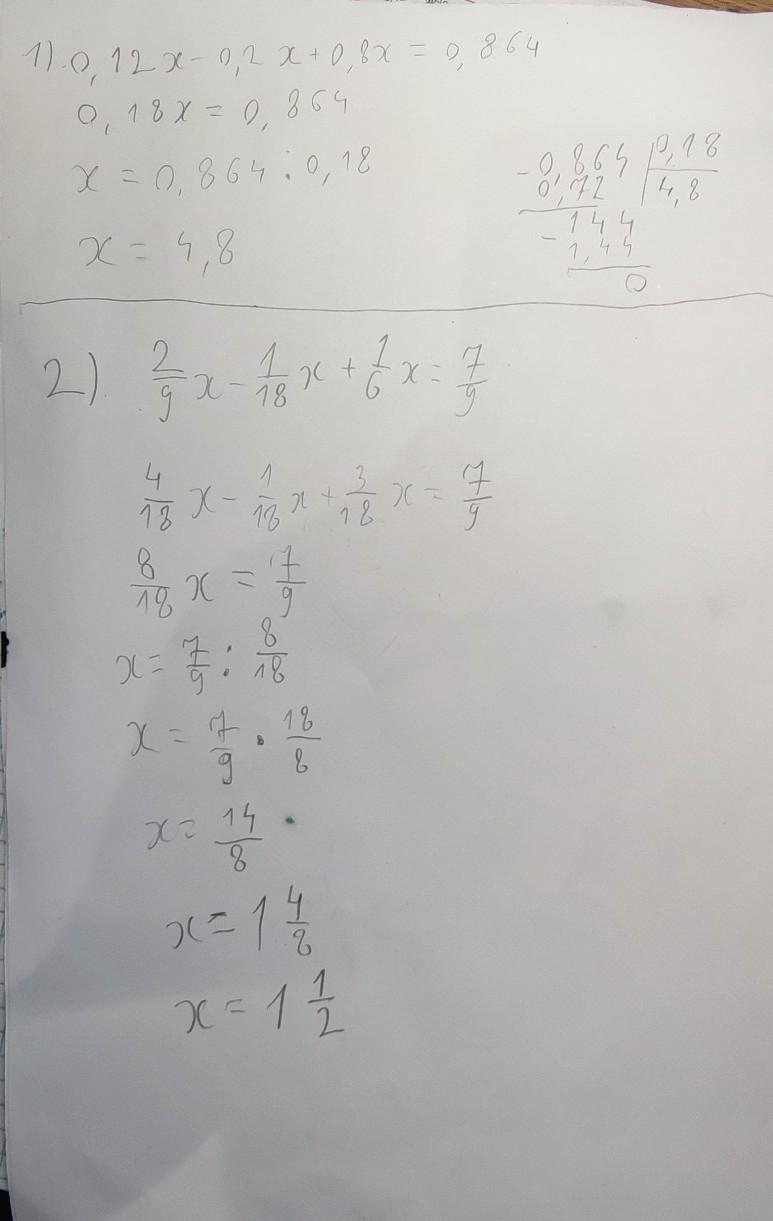 1) 0,12x - 0,2x + 0,8x = 0,864
0,18x = 0,864
x = 0,864 : 0,18
x = 4,8
- 0,864 | 0,18
0,72 | 4,8
- 144
1,44
0
2) 2/9 x - 1/18 x + 1/6 x = 7/9
4/18 x - 1/18 x + 3/18 x = 7/9
8/18 x = 7/9
x = 7/9 : 8/18
x = 7/9 · 18/8
x = 14/8
x = 1 4/8
x = 1 1/2